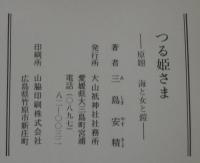 つる姫さま
――原題 海と女と鎧――
著者 三島安精
発行所 大山祇神社社務所
愛媛県大三島町宮浦
電話(〇八九七)
八二―〇〇三二
印刷所 山脇印刷株式会社
広島県竹原市新庄町